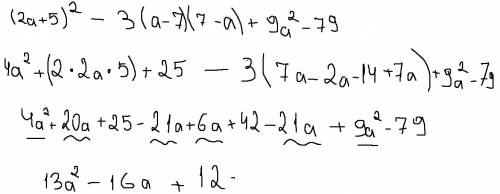 (2a+5)² - 3(a-7)(7-a) + 9a² - 79
4a² + (2·2a·5) + 25 - 3(7a - 2a - 14 + 7a) + 9a² - 79
4a² + 20a + 25 - 21a + 6a + 42 - 21a + 9a² - 79
13a² - 16a + 12 -